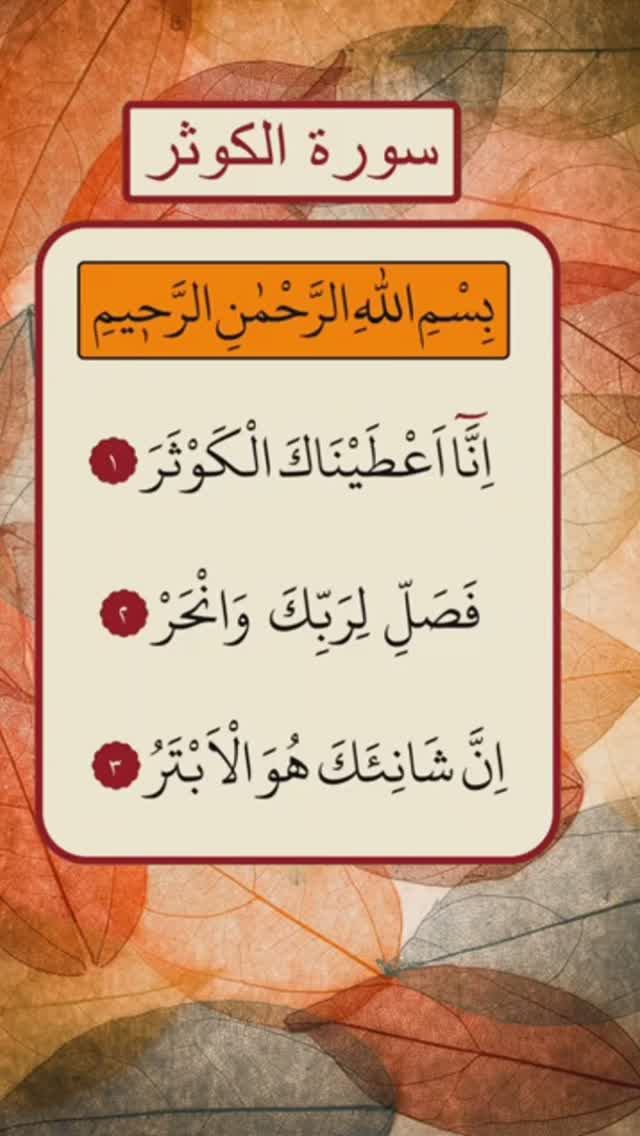 سورة الكوثر
بِسْمِ اللّٰهِ الرَّحْمٰنِ الرَّحٖيمِ
اِنَّٓا اَعْطَيْنَاكَ الْكَوْثَرَ ١
فَصَلِّ لِرَبِّكَ وَانْحَرْ ٢
اِنَّ شَانِئَكَ هُوَ الْاَبْتَرُ ٣